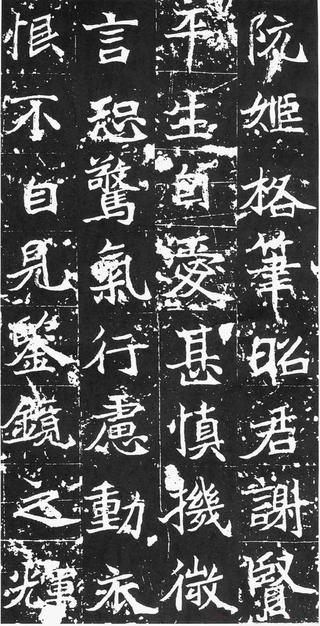 阮姬格筆昭君謝賢
平生自愛甚慎機微
言恐驚氣行慮動衣
恨不自見鑒鏡之輝